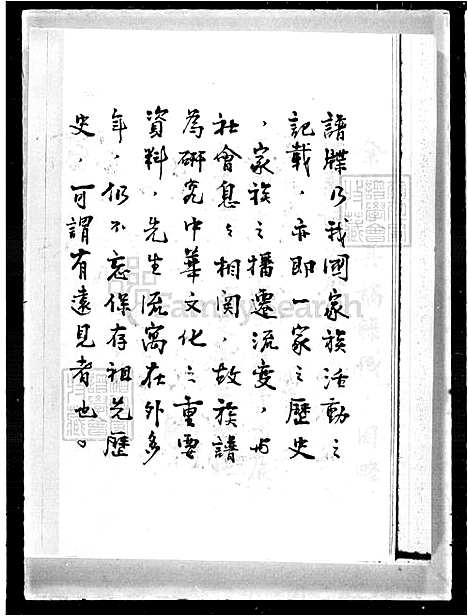 譜牒乃我國家族活動之
記載，亦即一家之歷史
，家族之播遷流變，與
社會息之相関，故族譜
為研究中華文化之重要
資料，先生流寓在外多
年，仍不忘保存祖先歷
史，可謂有遠見者也。
FamilySearch